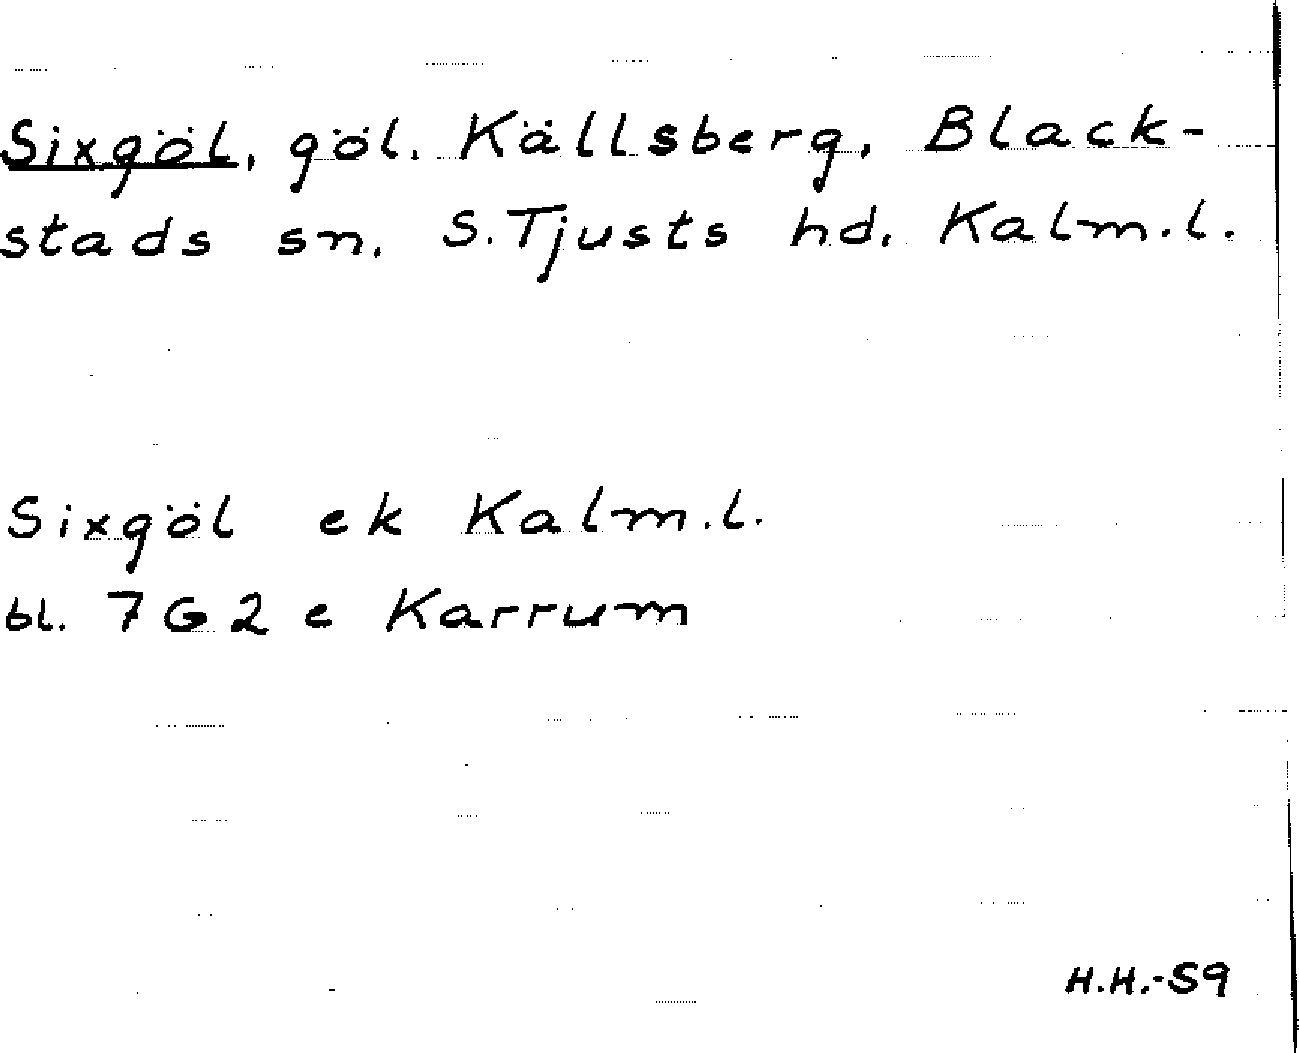 Sixgöl, göl. Källsberg, Black-
stads sn. S. Tjusts hd. Kalm.l.
Sixgöl ek Kalm.l.
bl. 7G2e Karrum
H.H.-59